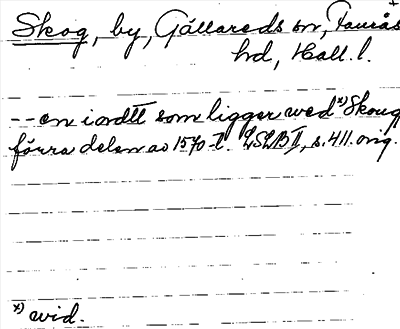 Skog, by, Gällareds sn, Faurås
hd, Hall. l.
-- en iordtt som ligger wed x) Skoug
förra delen av 1570-t. LSLB II, s. 411. orig.
x) wid.